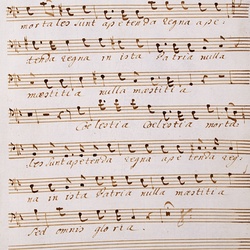 mortales sunt apetenda regna ape.
tenda regna in ista Patria nulla
mæstitia nulla mæstitia
Cælestia Cælestia morta
les sunt apetenda regna ape tenda reg.
na in ista Patria nulla mæstitia
sed omnis gloria.